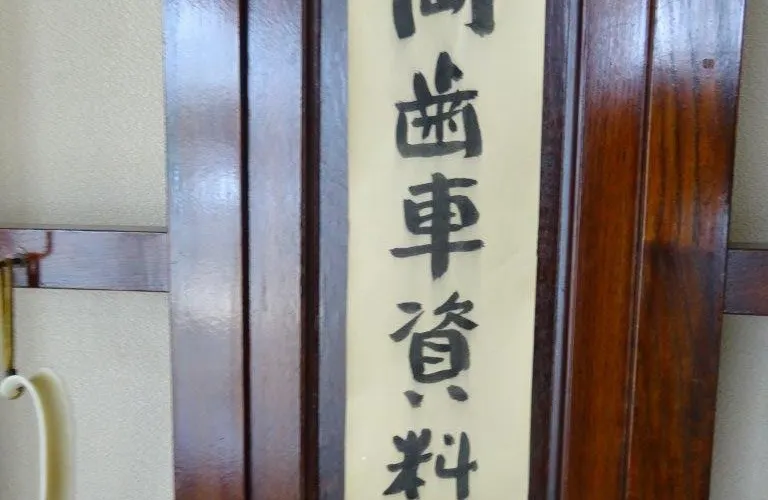 歯車資料